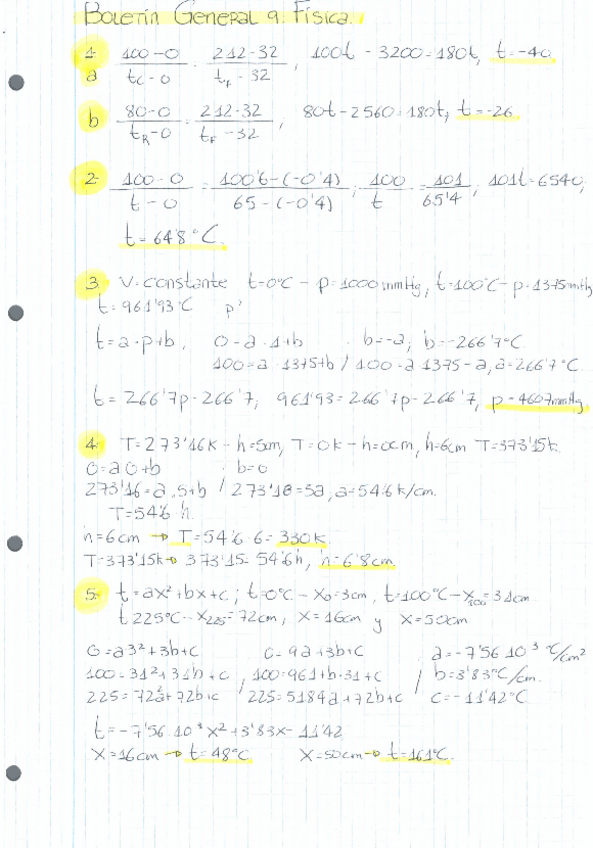 BOLETÍN GENERAL 9. FÍSICA.
1 a (100-0)/(tc-0) = (212-32)/(tF-32), 100t - 3200=180t, t=-40
b (80-0)/(tR-0) = (212-32)/(tF-32), 80t-2560=180t; t=-26
2 (100-0)/(t-0) = (100'6-(-0'4))/(65-(-0'4)); 100/t = 101/65'4; 101t=6540;
t=64'8°C.
3. V. constante t=0°C - p=1000mmHg, t=100°C - p=1375mmHg
t=961'93°C p'
t=a·p+b, 0=a·1+b b=-a; b=-266'7°C.
100=a·1375+b / 100=a 1375-a, a=266'7°C
t=266'7p-266'7; 961'93=266'7p-266'7, p=4607mmHg
4. T=273'16K-h=5cm, T=0K-h=0cm, h=6cm T=373'15K.
0=a0+b b=0
273'16=a.5+b / 273'16=5a, a=54'6K/cm.
T=54'6·h.
h=6cm → T=54'6·6=330K.
T=373'15K→373'15=54'6h, h=6'8cm
5. t=ax²+bx+c; t=0°C-X₀=3cm, t=100°C-X₁₀₀=31cm
t 225°C-X₂₂₅=72cm, x=16cm y x=50cm
0=a3²+3b+c 0=9a+3b+c a=-7'56 10³ °C/cm²
100=31²+31b+c, 100=961+b·31+c / b=3'83°C/cm.
225=72²a+72b+c 225=5184a+72b+c c=-11'42°C
t=-7'56.10³x²+3'83x-11'42
X=16cm→t=48°C X=50cm→t=161°C.